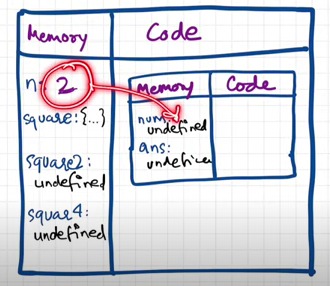 Memory
Code
n: 2
square: {...}
square2:
undefined
squar4:
undefined
Memory
Code
num:
undefined
ans:
undefined